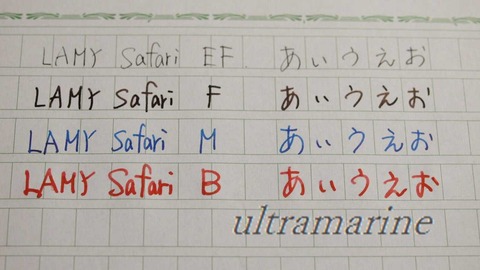 LAMY Safari EF. あいうえお
LAMY Safari F あいうえお
LAMY Safari M あいうえお
LAMY Safari B あいうえお
ultramarine